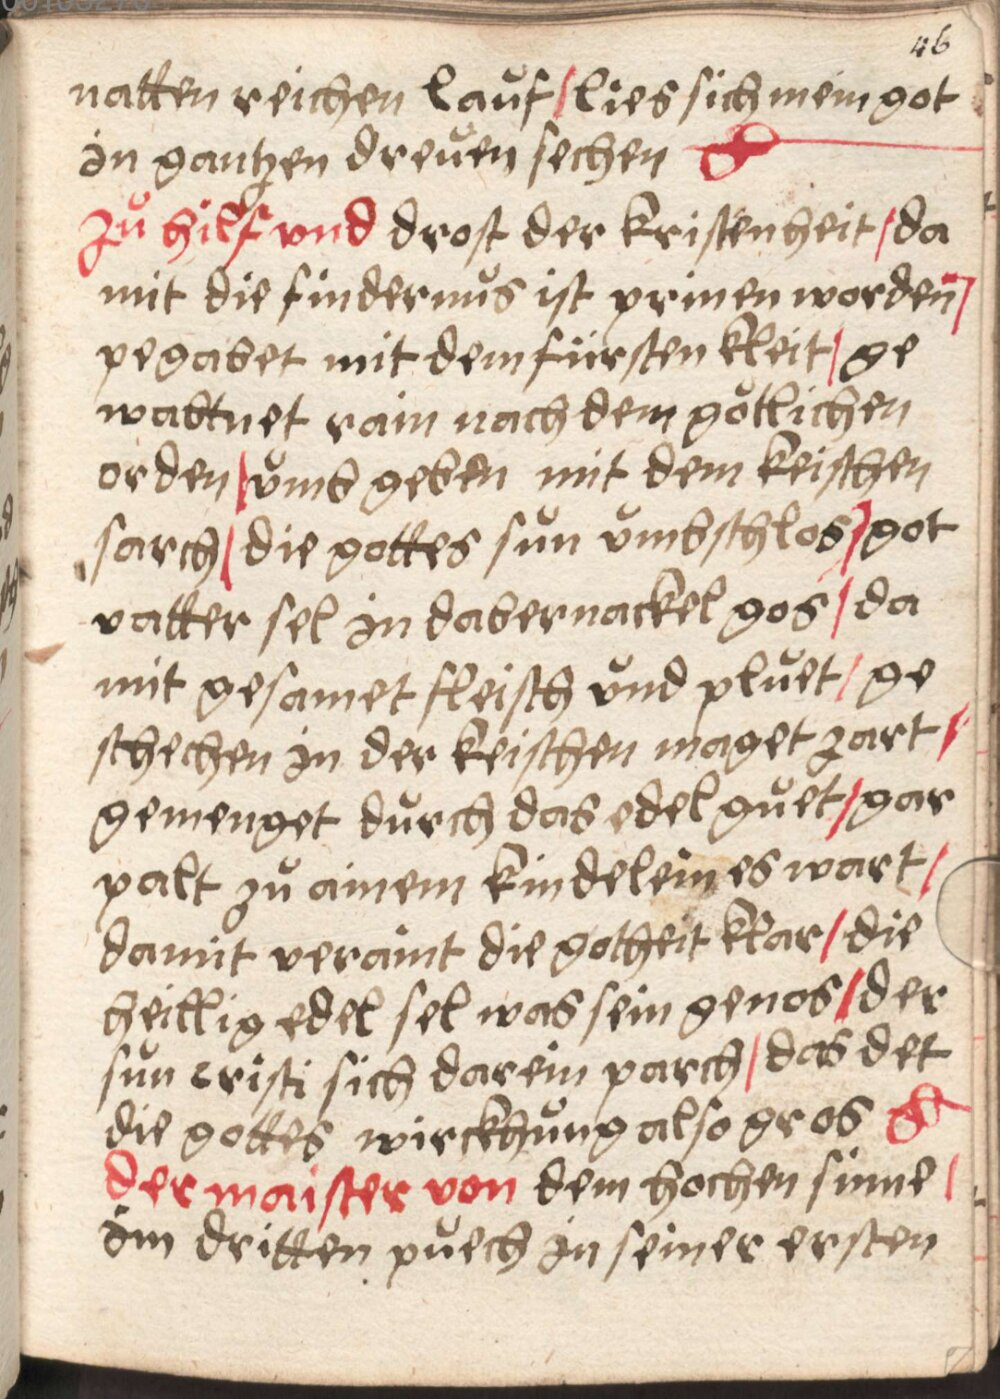 46
natten reichen lauf / lies sich mein got
in gantzen dreuen sechen
Zu hilf vnd drost der kristenheit / da
mit die findernus ist prinen worden /
pegabet mit dem fürsten kleit / ge
wabtnet rain nach dem götlichen
orden / vmb geben mit dem keischen
sarch / die gottes sun vmbschlos / got
vatter sel in dabernackel gos / da
mit gesamet fleisch vnd pluet / ge
schechen in der keischen maget zart /
gemenget durch das edel guet / gar
palt zu ainem kindelein es wart /
damit veraint die gotheit klar / die
heillig edel sel was sein genos / der
sun cristi sich darein parch / das det
die gottes wirckhung also gros
Der maister von dem hochen sinne /
im dritten puech in seiner ersten